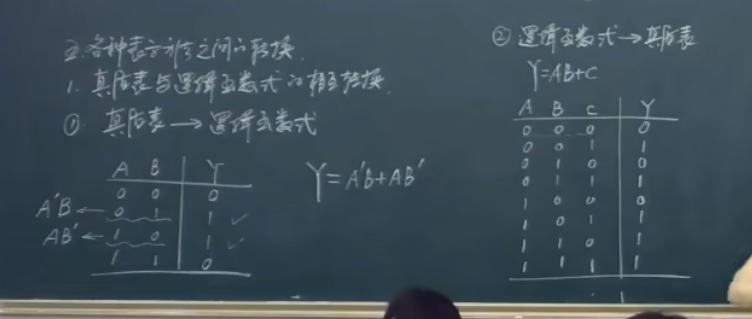 三.各种表示方法之间的转换.
1. 真值表与逻辑函数式的相互转换.
① 真值表→逻辑函数式
A B Y
0 0 0
A'B ← 0 1 1 ✓
AB' ← 1 0 1 ✓
1 1 0
Y=A'B+AB'
② 逻辑函数式→真值表
Y=AB+C
A B C Y
0 0 0 0
0 0 1 1
0 1 0 0
0 1 1 1
1 0 0 0
1 0 1 1
1 1 0 1
1 1 1 1